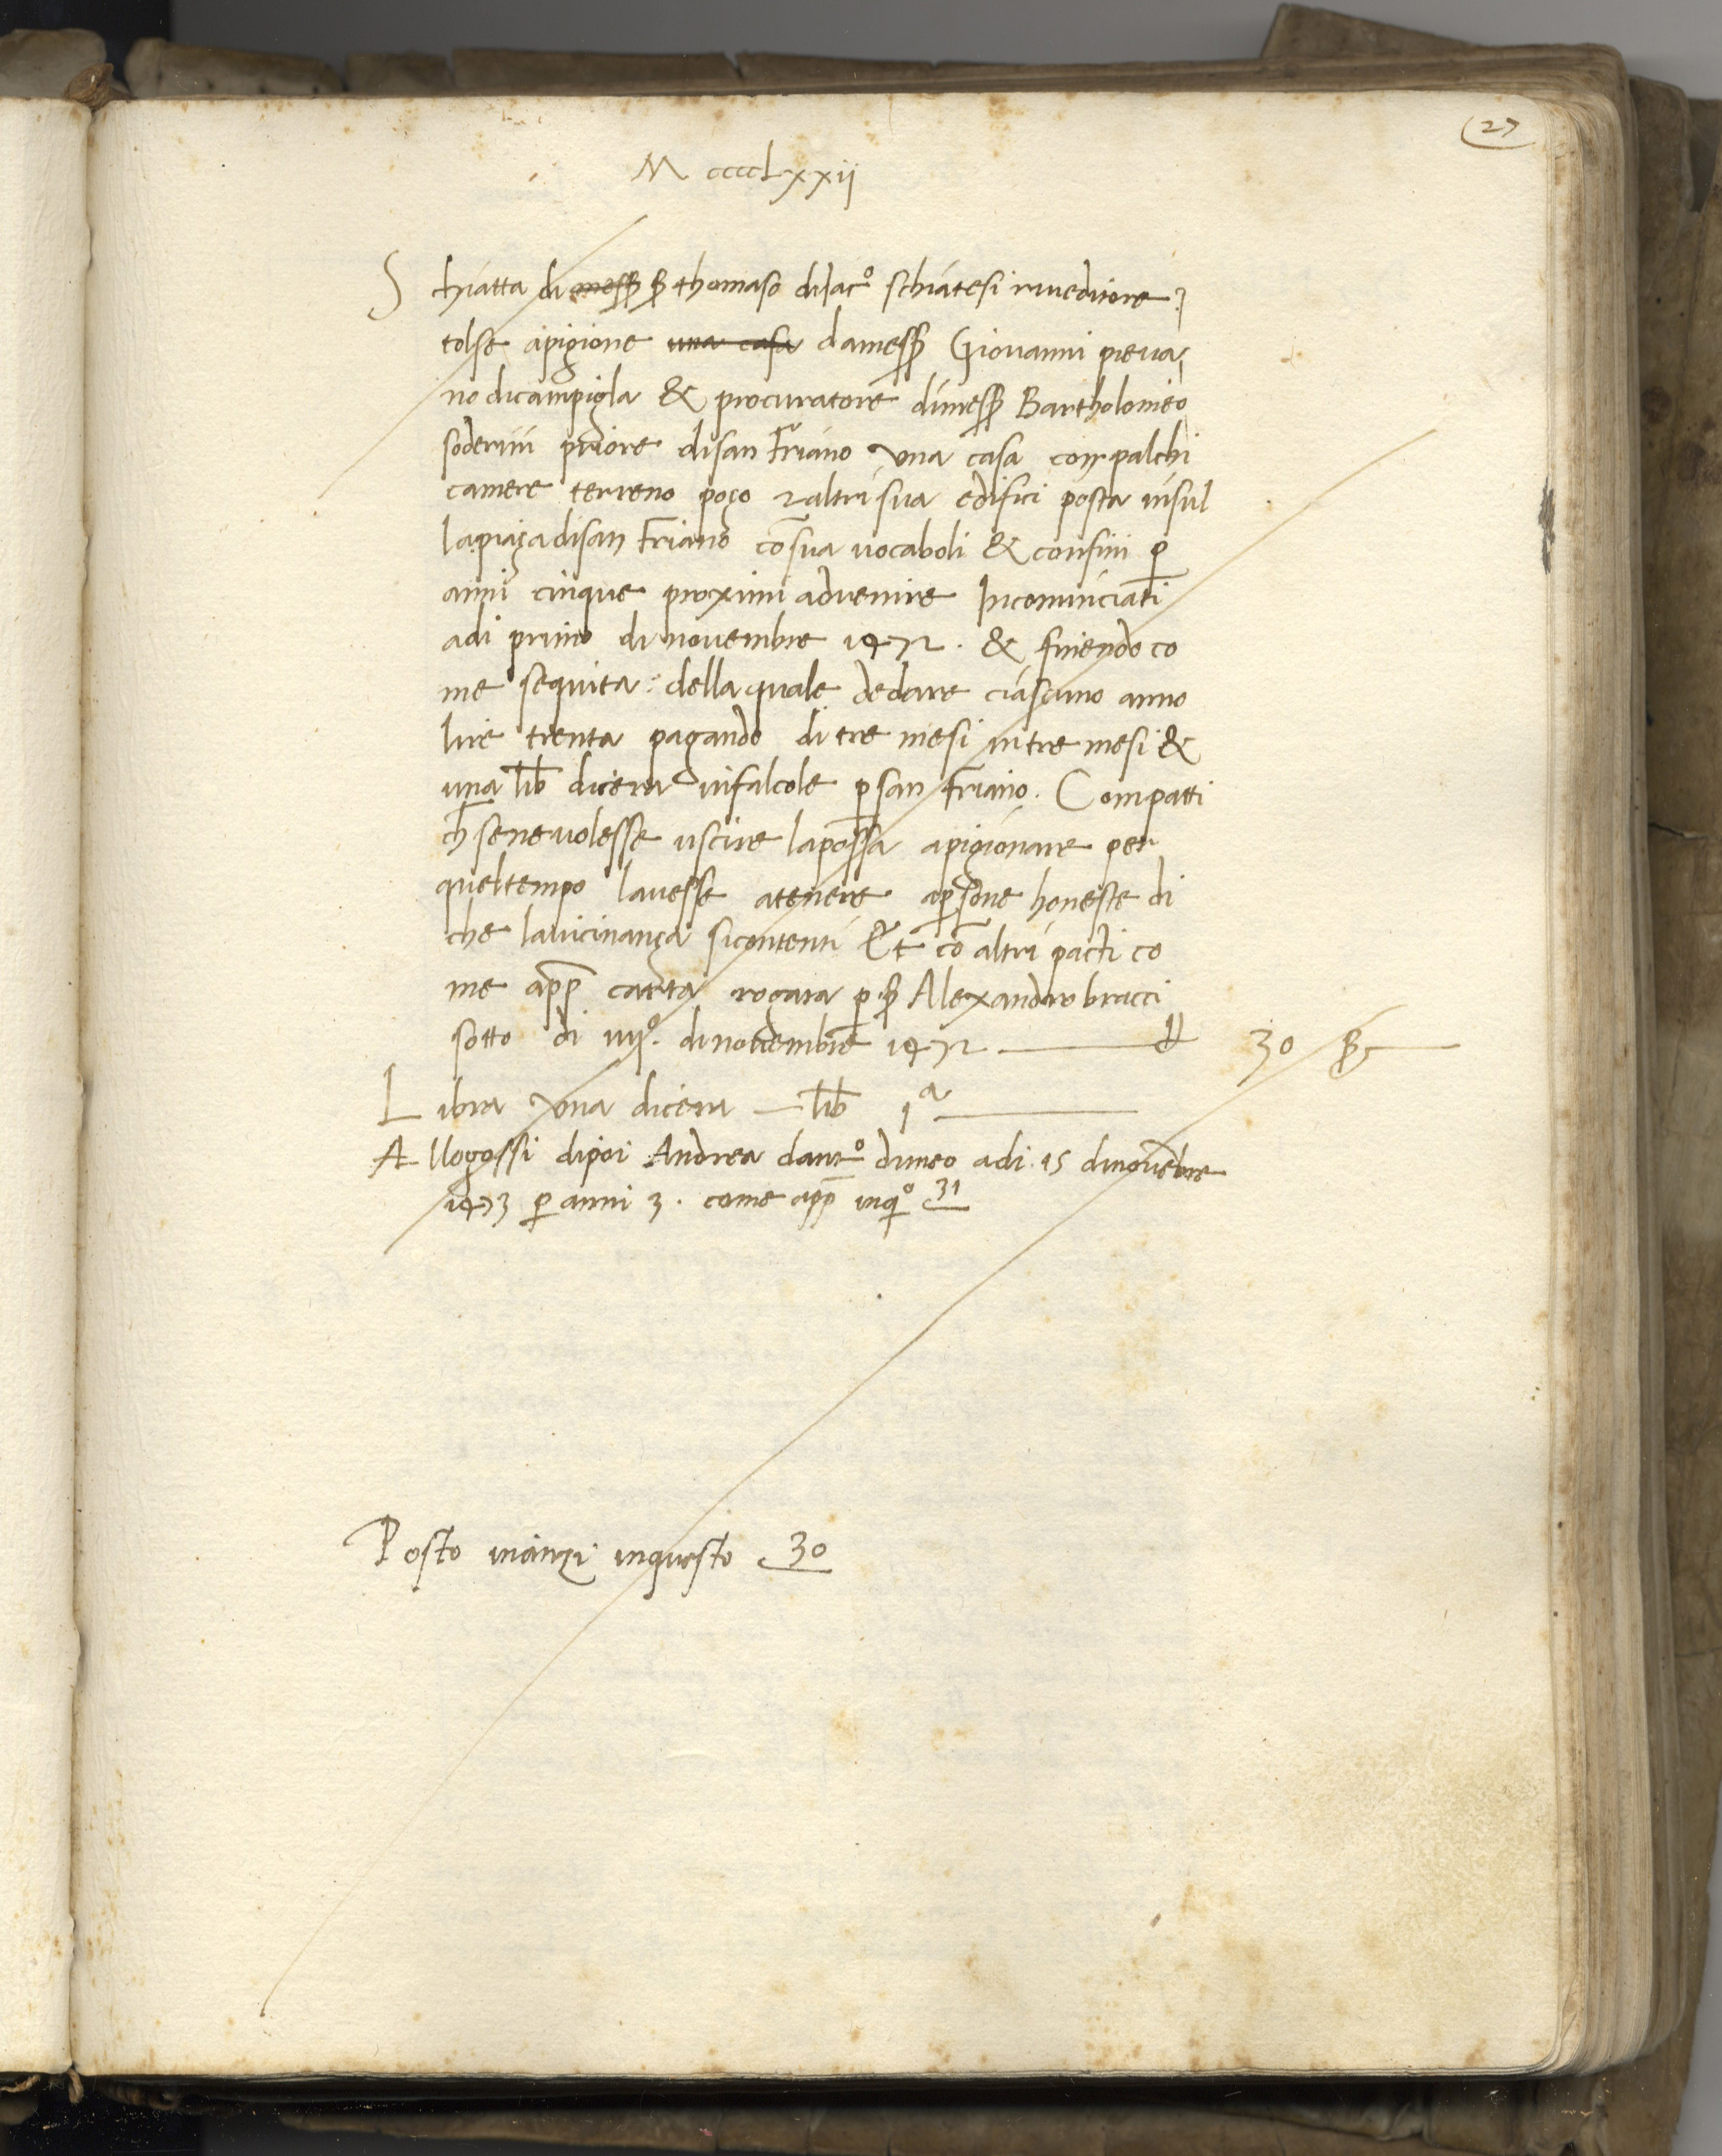 27
M ccccLxxii
Schiatta di messer ser thomaso disaco schiatesi riveditore
tolse apigione una casa damesser Giovanni pieva
no dicampigla & procuratore dimesser Bartholomeo
soderini priore disan Friano una casa con palchi
camere terreno poço & altri sua edifici posta insul
lapiaça disan Friano cō sua vocaboli & confini p
anni cinque proximi advenire Incominciati
adi primo di novembre 1472. & finiendo co
me sequita: dellaquale dedare ciascuno anno
lire trenta pagando di tre mesi in tre mesi &
una lib dicera infalcole p san Friano. Compatti
ch senevolesse uscire lapossa apigionare per
queltempo lavesse atenere apersone honeste di
che lavicinança sicontenti Et cō altri pacti co
me app carta rogata p ser Alexandro bracci
sotto di iiijo. dinovembre 1472 — 30 ß —
Libra una dicera — lib 1a —
Allogossi dipoi Andrea dantoo dimeo adi 15 dinovēbre
1473 p anni 3. come app inqo 31
Posto inanzi inquesto 30